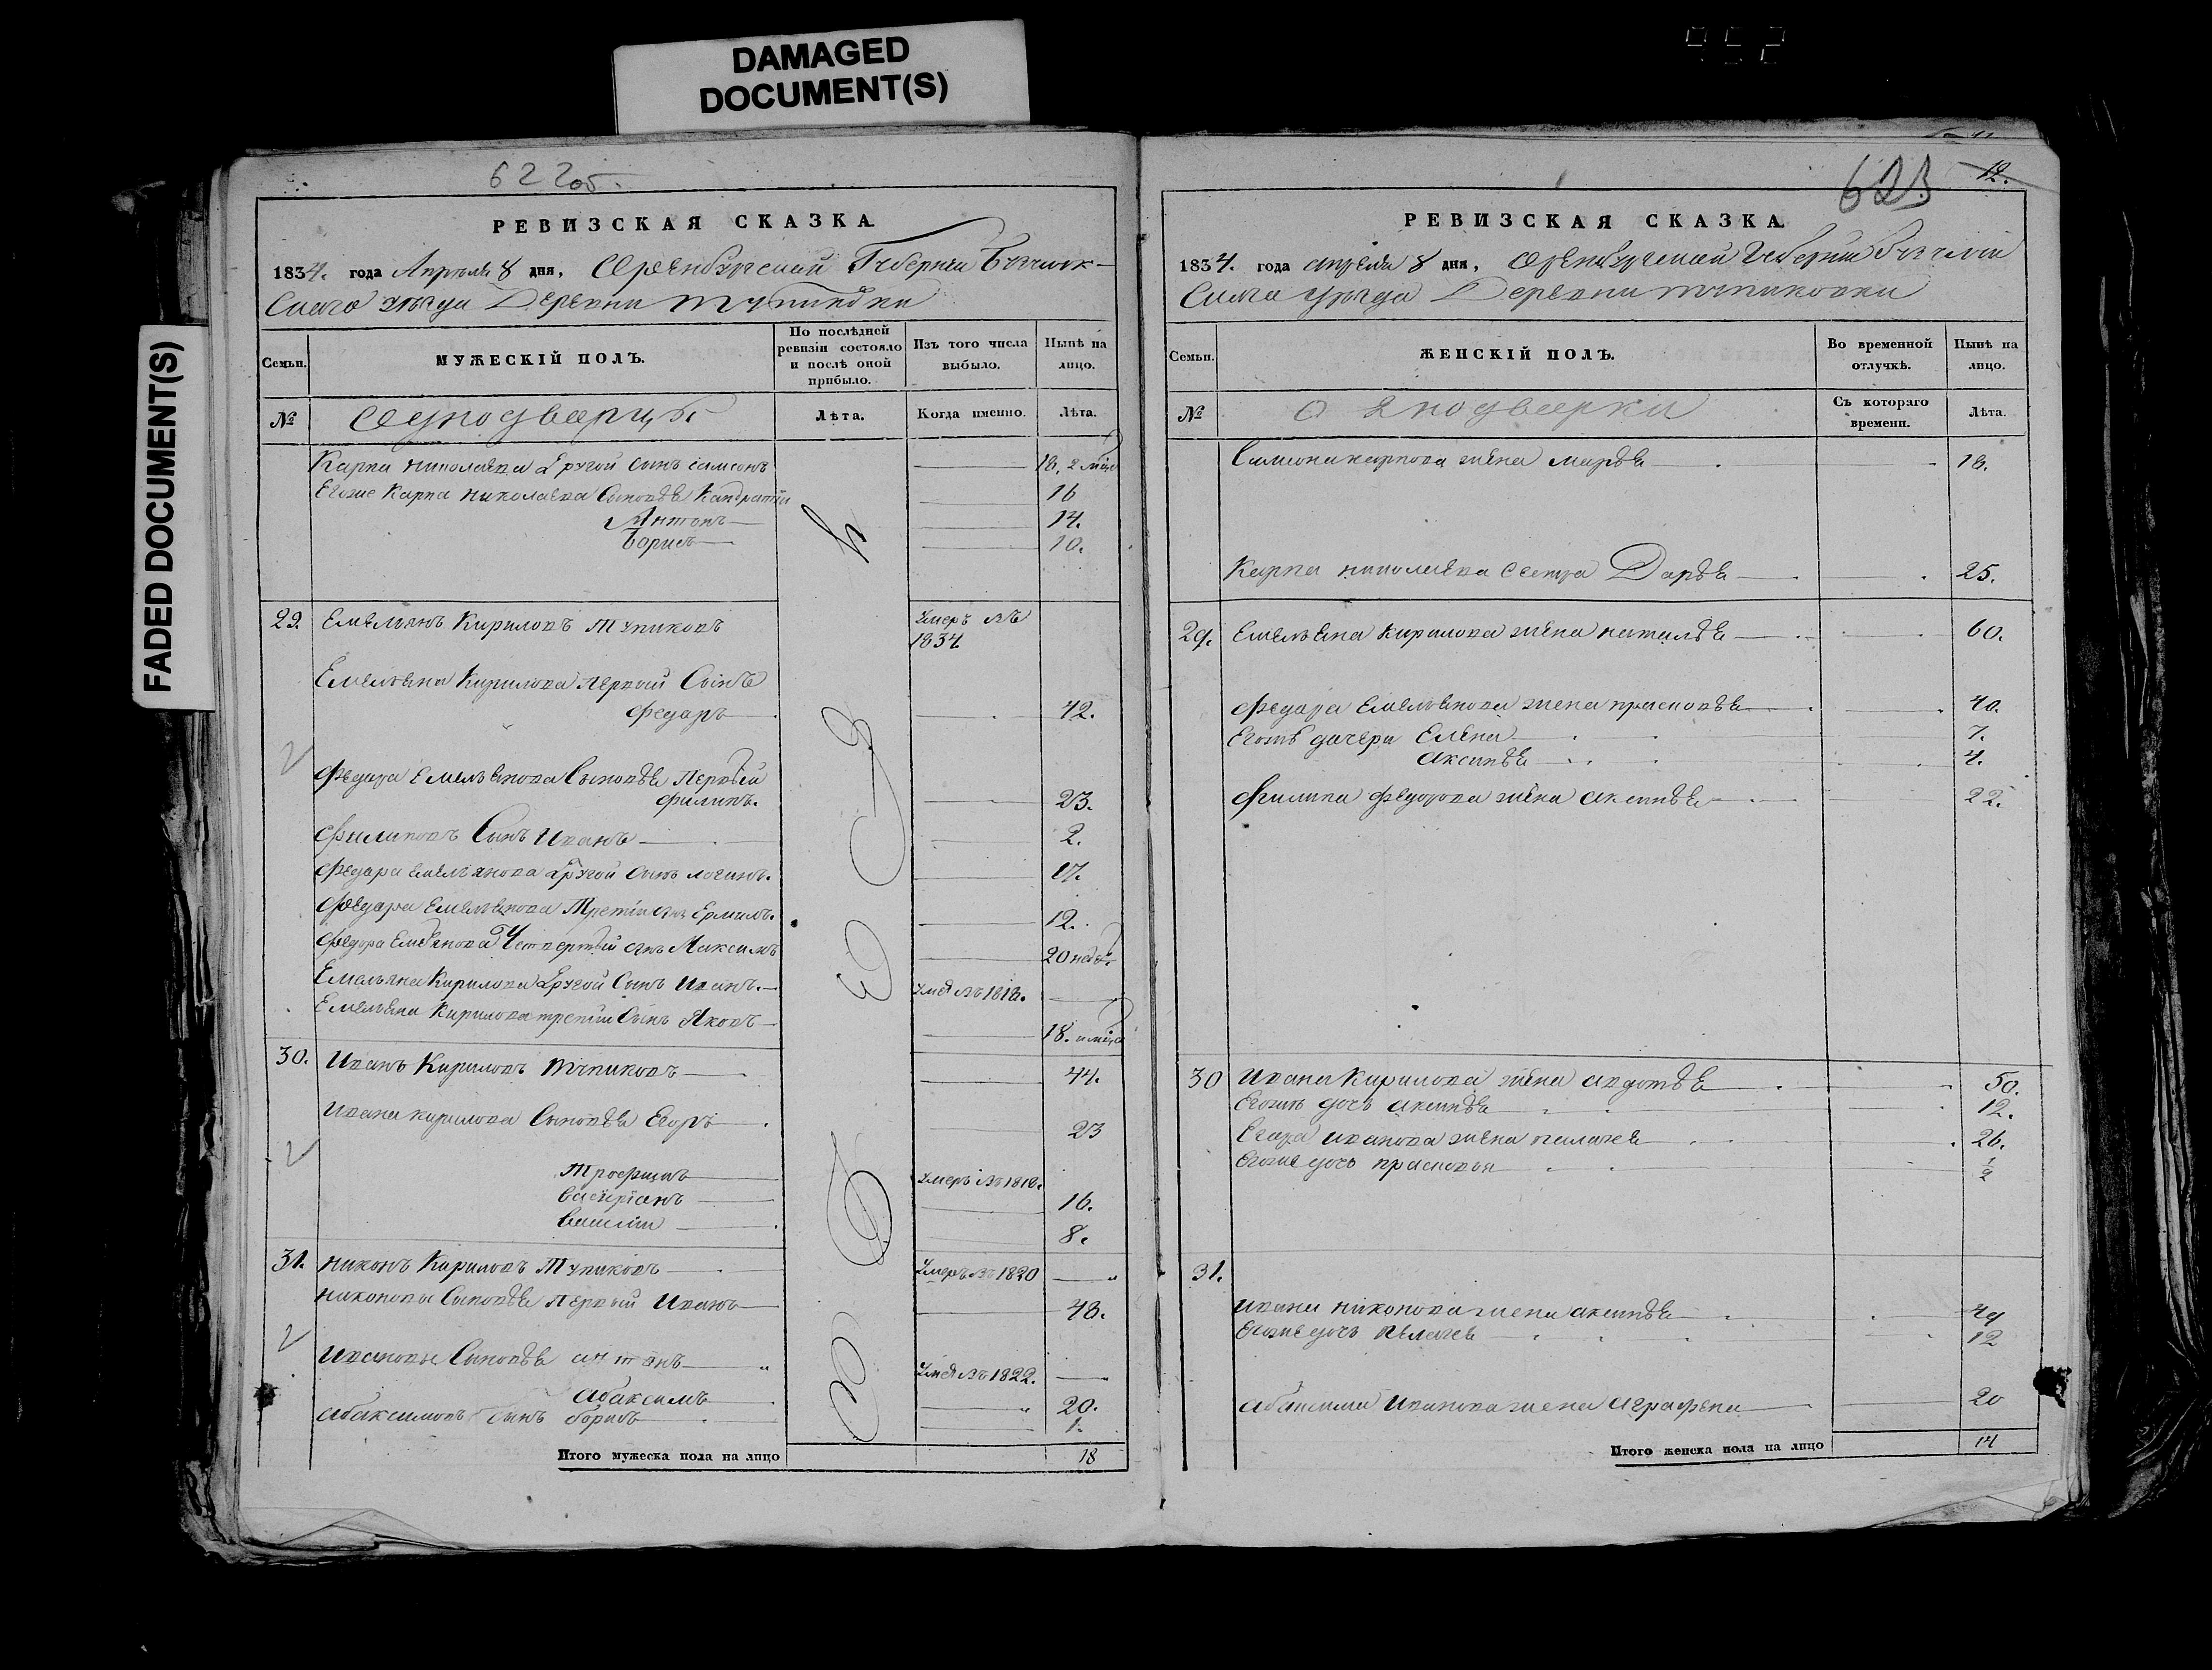 DAMAGED
DOCUMENT(S)
FADED DOCUMENT(S)
622об.
РЕВИЗСКАЯ СКАЗКА
1834. года Апреля 8 дня, Оренбургской Губернии Бузулук-
Скаго уезда Деревни Тупиковки
Семьи.
МУЖЕСКІЙ ПОЛЪ.
По послѣдней ревизіи состояло и послѣ оной прибыло.
Изъ того числа выбыло.
Нынѣ на лицо.
№
Однодворцы
Лѣта.
Когда именно.
Лѣта.
Карпа николаева Другой сынъ самсонъ 18, 2 мѣс
Егоже Карпа николаева Сыновья Кандратий 16
Антонъ 14.
Борисъ 10.
29. Емельянъ Кириловъ Тупиковъ Умеръ въ 1834
Емельяна Кирилова первый Сынъ
Федаръ 42.
Федара Емельянова Сыновья Первый
Филипъ. 23.
Филиповъ Сынъ Иванъ 2.
Федара Емельянова Другой сынъ логинъ. 17.
Федара Емельянова Третiй сынъ Ермилъ. 12.
Федора Емельянова Четвертый сынъ Максимъ 20 недѣ
Емельяна Кирилова Другой Сынъ Иванъ. въ 1818.
Емельяна Кирилова третiй Сынъ Яковъ 18.
30. Иванъ Кириловъ Тупиковъ 44.
Ивана кирилова Сыновья Егоръ 23
Трофимъ Умеръ въ 1818.
16.
Василiй 8.
31. никонъ Кириловъ Тупиковъ Умеръ въ 1820
никоновы Сыновья первый Иванъ 48.
Ивановы Сыновья антонъ въ 1822.
Абаксимъ 20.
Абаксимовъ Сынъ борисъ 1.
Итого мужеска пола на лицо 18
623
12.
РЕВИЗСКАЯ СКАЗКА
1834. года апреля 8 дня, Оренбургской Губернии Бузулу
Скаго уезда Деревни тупиковки
Семьи.
ЖЕНСКІЙ ПОЛЪ.
Во временной отлучкѣ.
Нынѣ на лицо.
№
Однодворки
Съ котораго времени.
Лѣта.
Самсона карпова жена марья 18.
Карпа николаева сестра Дарья 25.
29. Емельяна кирилова жена наталья 60.
Федара Емельянова жена прасковья 40.
Егожъ дочери Елена 7.
Аксинья 4.
Филипа Федорова жена аксинья 22.
30 Ивана Кирилова жена авдотья 50.
Егожъ дочь аксинья 12.
Егора иванова жена пилагея 26.
Егоже дочь прасковья ½
31.
Ивана никонова жена аксинья 49
Егоже дочь пелагея 12
Абаксима Иванова жена аграфена 20
Итого женска пола на лицо 14